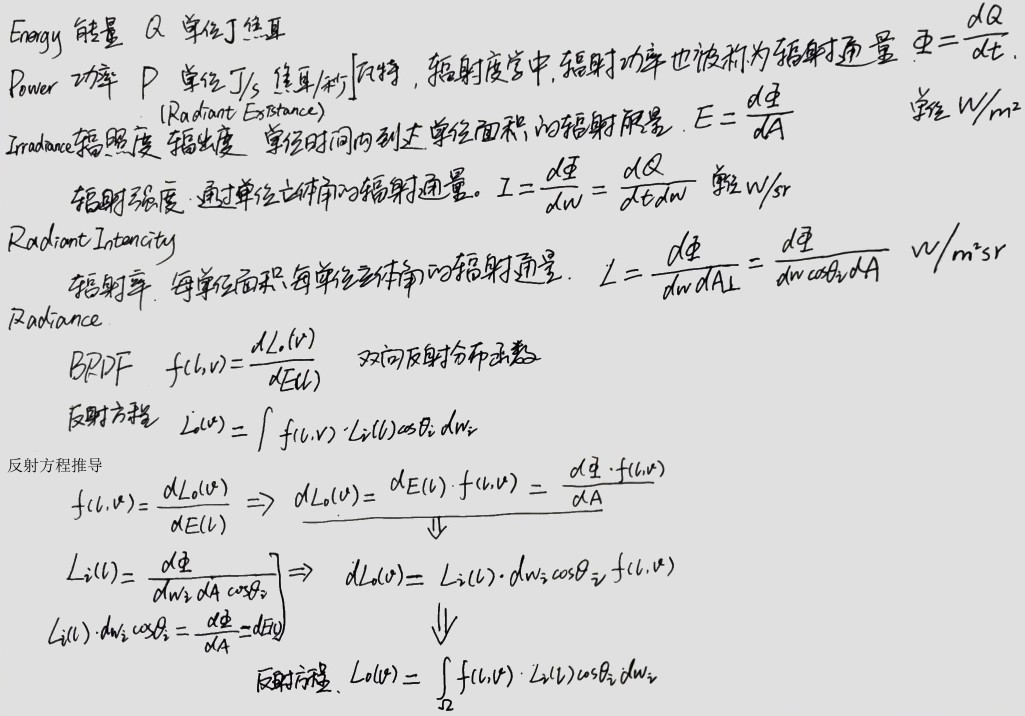 Energy 能量 Q 单位J 焦耳
Power 功率 P 单位 J/s 焦耳/秒]瓦特，辐射度学中,辐射功率也被称为辐射通量 Φ = dQ/dt.
(Radiant Existance)
Irradiance 辐照度 辐出度 单位时间内到达单位面积的辐射能量. E = dΦ/dA 单位 W/m²
辐射强度.通过单位立体角的辐射通量。 I = dΦ/dw = dQ/dtdw 单位 W/sr
Radiant Intencity
辐射率. 每单位面积,每单位立体角的辐射通量. L = dΦ/dwdA⊥ = dΦ/dwcosθ₂dA W/m²sr
Radiance
BRDF f(l,v) = dLₒ(v)/dE(l) 双向反射分布函数
反射方程 Lₒ(v) = ∫ f(l,v)·Lᵢ(l)cosθᵢ dwᵢ
反射方程推导
f(l,v) = dLₒ(v)/dE(l) ⇒ dLₒ(v) = dE(l)·f(l,v) = dΦ·f(l,v)/dA
⇓
Lᵢ(l) = dΦ/dwᵢ dA cosθᵢ ] ⇒ dLₒ(v) = Lᵢ(l)·dwᵢcosθᵢ f(l,v)
Lᵢ(l)·dwᵢ cosθᵢ = dΦ/dA = dE(l)
⇓
反射方程. Lₒ(v) = ∫Ω f(l,v)·Lᵢ(l)cosθᵢ dwᵢ